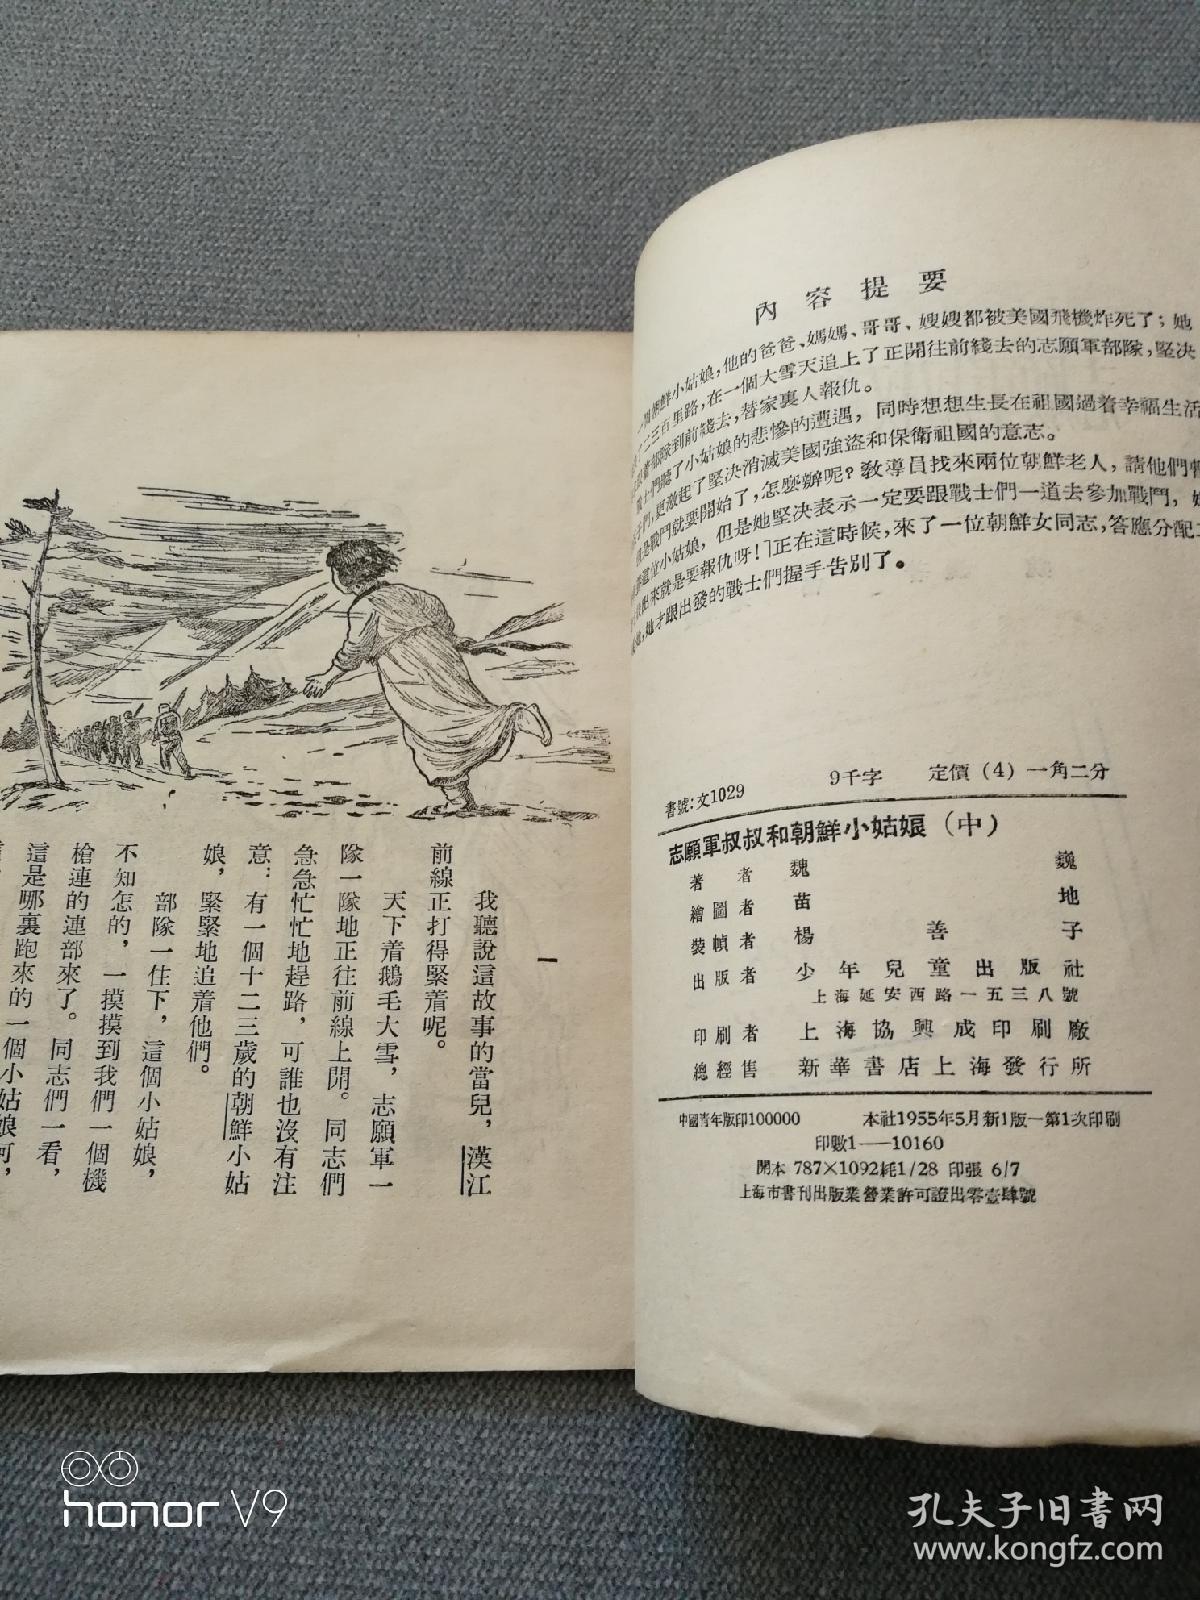 內容提要
朝鮮小姑娘，他的爸爸、媽媽、哥哥、嫂嫂都被美國飛機炸死了；她
二三百里路，在一個大雪天追上了正開往前綫去的志願軍部隊，堅决
部隊到前綫去，替家裏人報仇。
戰士們聽了小姑娘的悲慘的遭遇，同時想想生長在祖國過着幸福生活
子們，更激起了堅决消滅美國強盜和保衛祖國的意志。
是戰鬥就要開始了，怎麼辦呢？教導員找來兩位朝鮮老人，請他們
小姑娘，但是她堅决表示一定要跟戰士們一道去參加戰鬥，
出來就是要報仇呀！］正在這時候，來了一位朝鮮女同志，答應分配
她才跟出發的戰士們握手告別了。
書號：文1029 9千字 定價（4）一角二分
志願軍叔叔和朝鮮小姑娘（中）
著者 魏巍
繪圖者 苗地
裝幀者 楊善子
出版者 少年兒童出版社
上海延安西路一五三八號
印刷者 上海協興成印刷廠
總經售 新華書店上海發行所
中國青年版印100000 本社1955年5月新1版—第1次印刷
印數1——10160
開本 787×1092耗1/28 印張 6/7
上海市書刊出版業營業許可證出零壹肆號
一
我聽說這故事的當兒，漢江
前線正打得緊着呢。
天下着鵝毛大雪，志願軍一
隊一隊地正往前線上開。同志們
急急忙忙地趕路，可誰也沒有注
意：有一個十二三歲的朝鮮小姑
娘，緊緊地追着他們。
部隊一住下，這個小姑娘，
不知怎的，一摸摸到我們一個機
槍連的連部來了。同志們一看，
這是哪裏跑來的一個小姑娘呵，
honor V9
孔夫子旧书网
www.kongfz.com